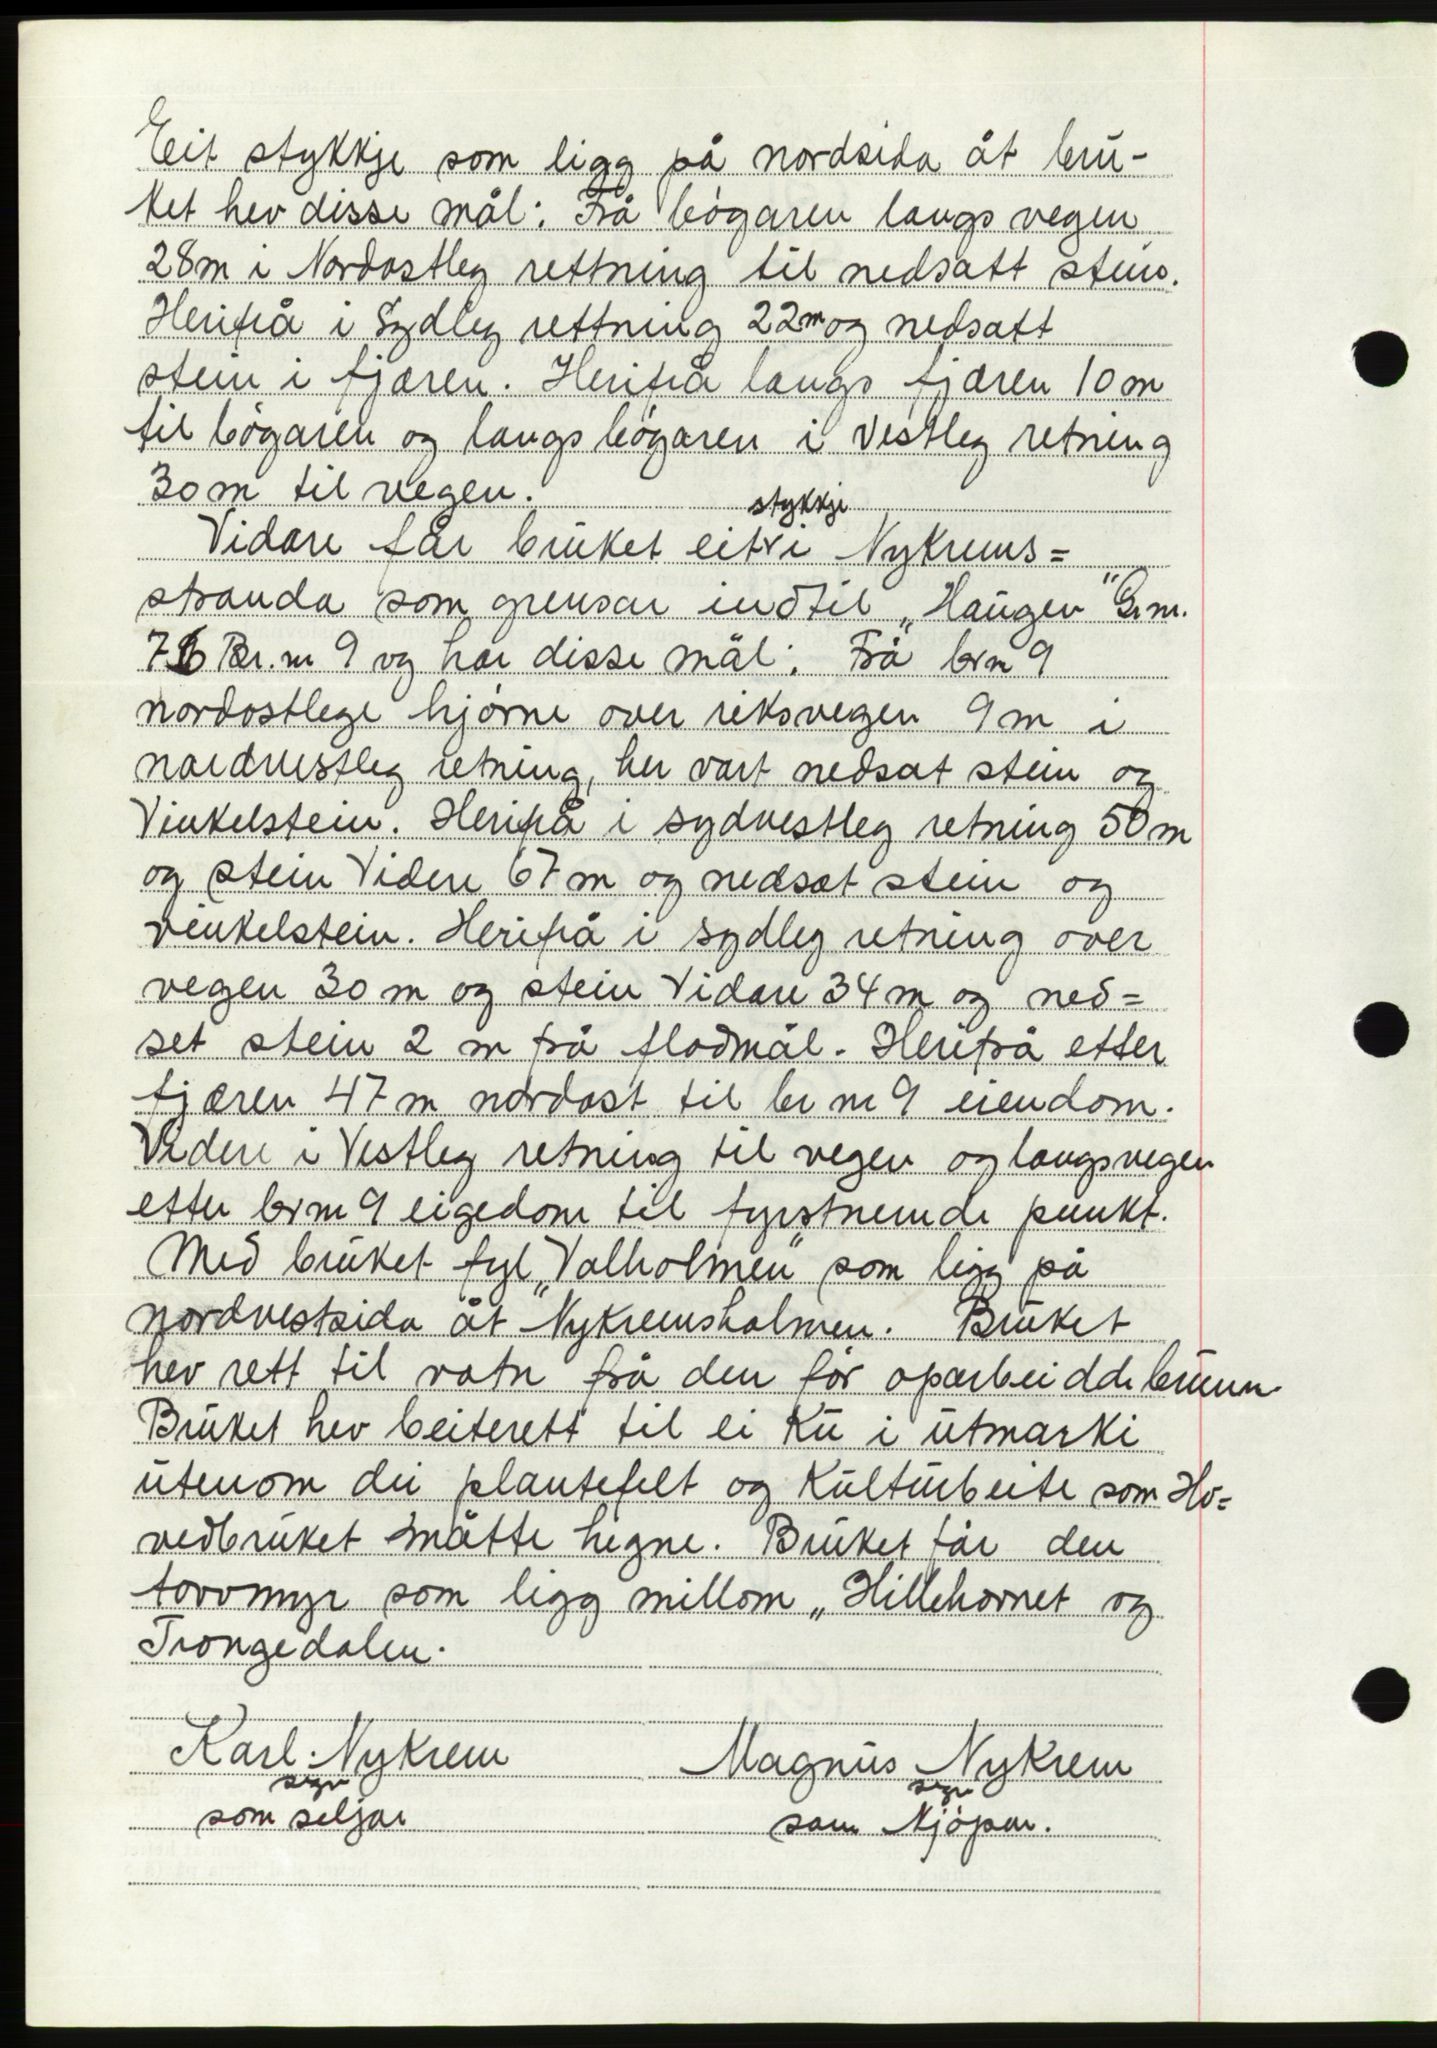 Eit stykkje som ligg på nordsida åt bru-
ket hev disse mål: Frå bögaren langs vegen
28m i Nordostleg rettning til nedsatt stein.
Herifrå i Sydleg rettning 22m og nedsatt
stein i fjæren. Herifrå langs fjæren 10 m
til bögaren og langs bögaren i vestleg retning
30 m til vegen.
stykkje
Vidare får bruket eit v i Nykrems=
stranda som grensar indtil „Haugen" Gr.nr.
76 Br. nr 9 og har disse mål: Frå br nr 9
nordostlege hjörne over riksvegen 9 m i
nordvestleg retning, her vart nedsat stein og
Vinkelstein. Herifrå i sydvestleg retning 50 m
og stein Videre 67 m og nedsat stein og
vinkelstein. Herifrå i sydleg retning over
vegen 30 m og stein Vidare 34 m og ned=
set stein 2 m frå flodmål. Herifrå etter
fjæren 47 m nordost til br nr 9 eiendom.
Videre i Vestleg retning til vegen og langs vegen
etter br nr 9 eigedom til fyrstnemnde punkt.
Med bruket fyl „Valholmen" som ligg på
nordvestsida åt Nykremsholmen. Bruket
hev rett til vatn frå den för oparbeidde brunn.
Bruket hev beiterett til ei Ku i utmarki
utenom dei plantefelt og Kulturbeite som Ho=
vedbruket måtte hegne. Bruket får den
torvmyr som ligg millom „Hillehornet og
Trongedalen.
Karl Nykrem Magnus Nykrem
sign sign
som seljar som Kjöpar.